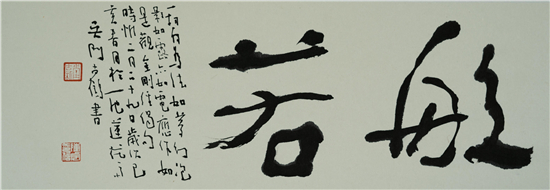 般若
一切有為法如夢幻泡
影如露亦如電應作如
是觀金剛經偈句
時惟二月二十九日歲次己
亥杏月於一池蓮花
吳門 書